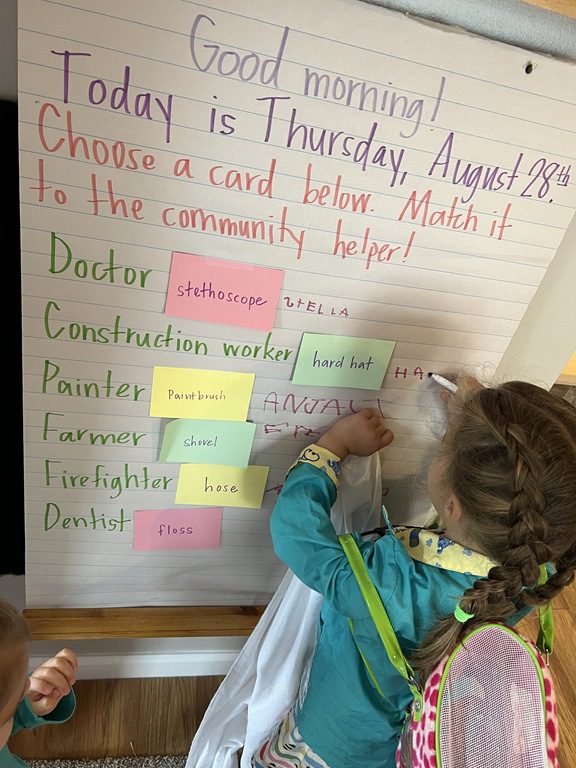 Good morning!
Today is Thursday, August 28th.
Choose a card below. Match it
to the community helper!
Doctor stethoscope STELLA
Construction worker hard hat HA
Painter Paintbrush ANJALI
Farmer shovel
Firefighter hose
Dentist floss